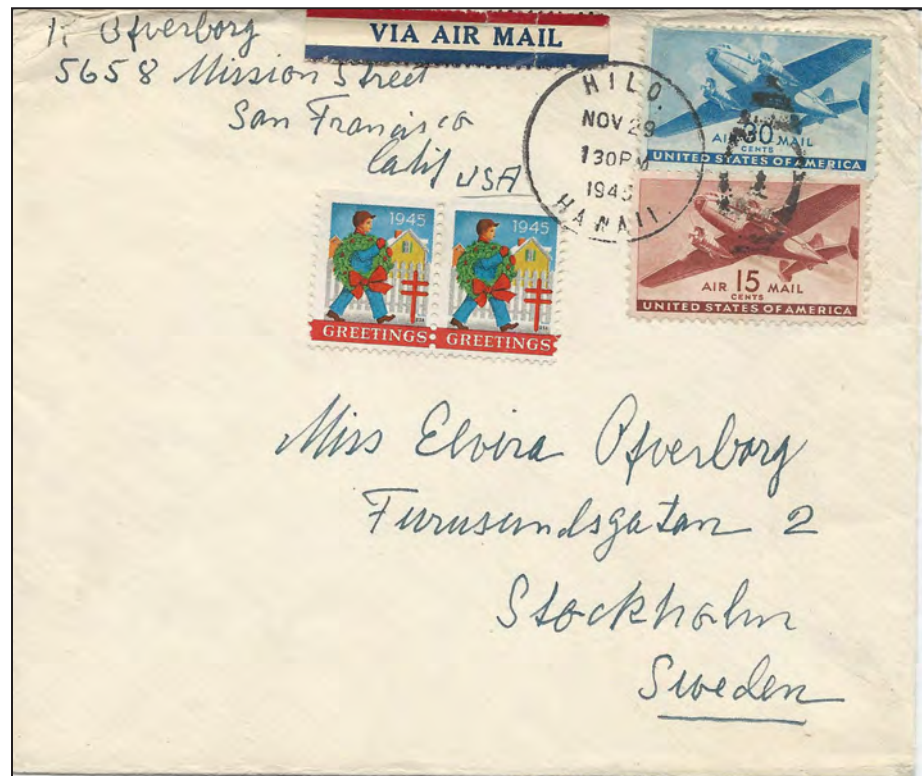 Ofverborg
5658 Mission Street
San Francisco
Calif USA
VIA AIR MAIL
HILO.
NOV 29
1 30 PM
1945
HAWAII.
30
AIR MAIL
CENTS
UNITED STATES OF AMERICA
AIR 15 MAIL
CENTS
UNITED STATES OF AMERICA
1945 1945
GREETINGS GREETINGS
Miss Elvira Ofverborg
Furusundsgatan 2
Stockholm
Sweden